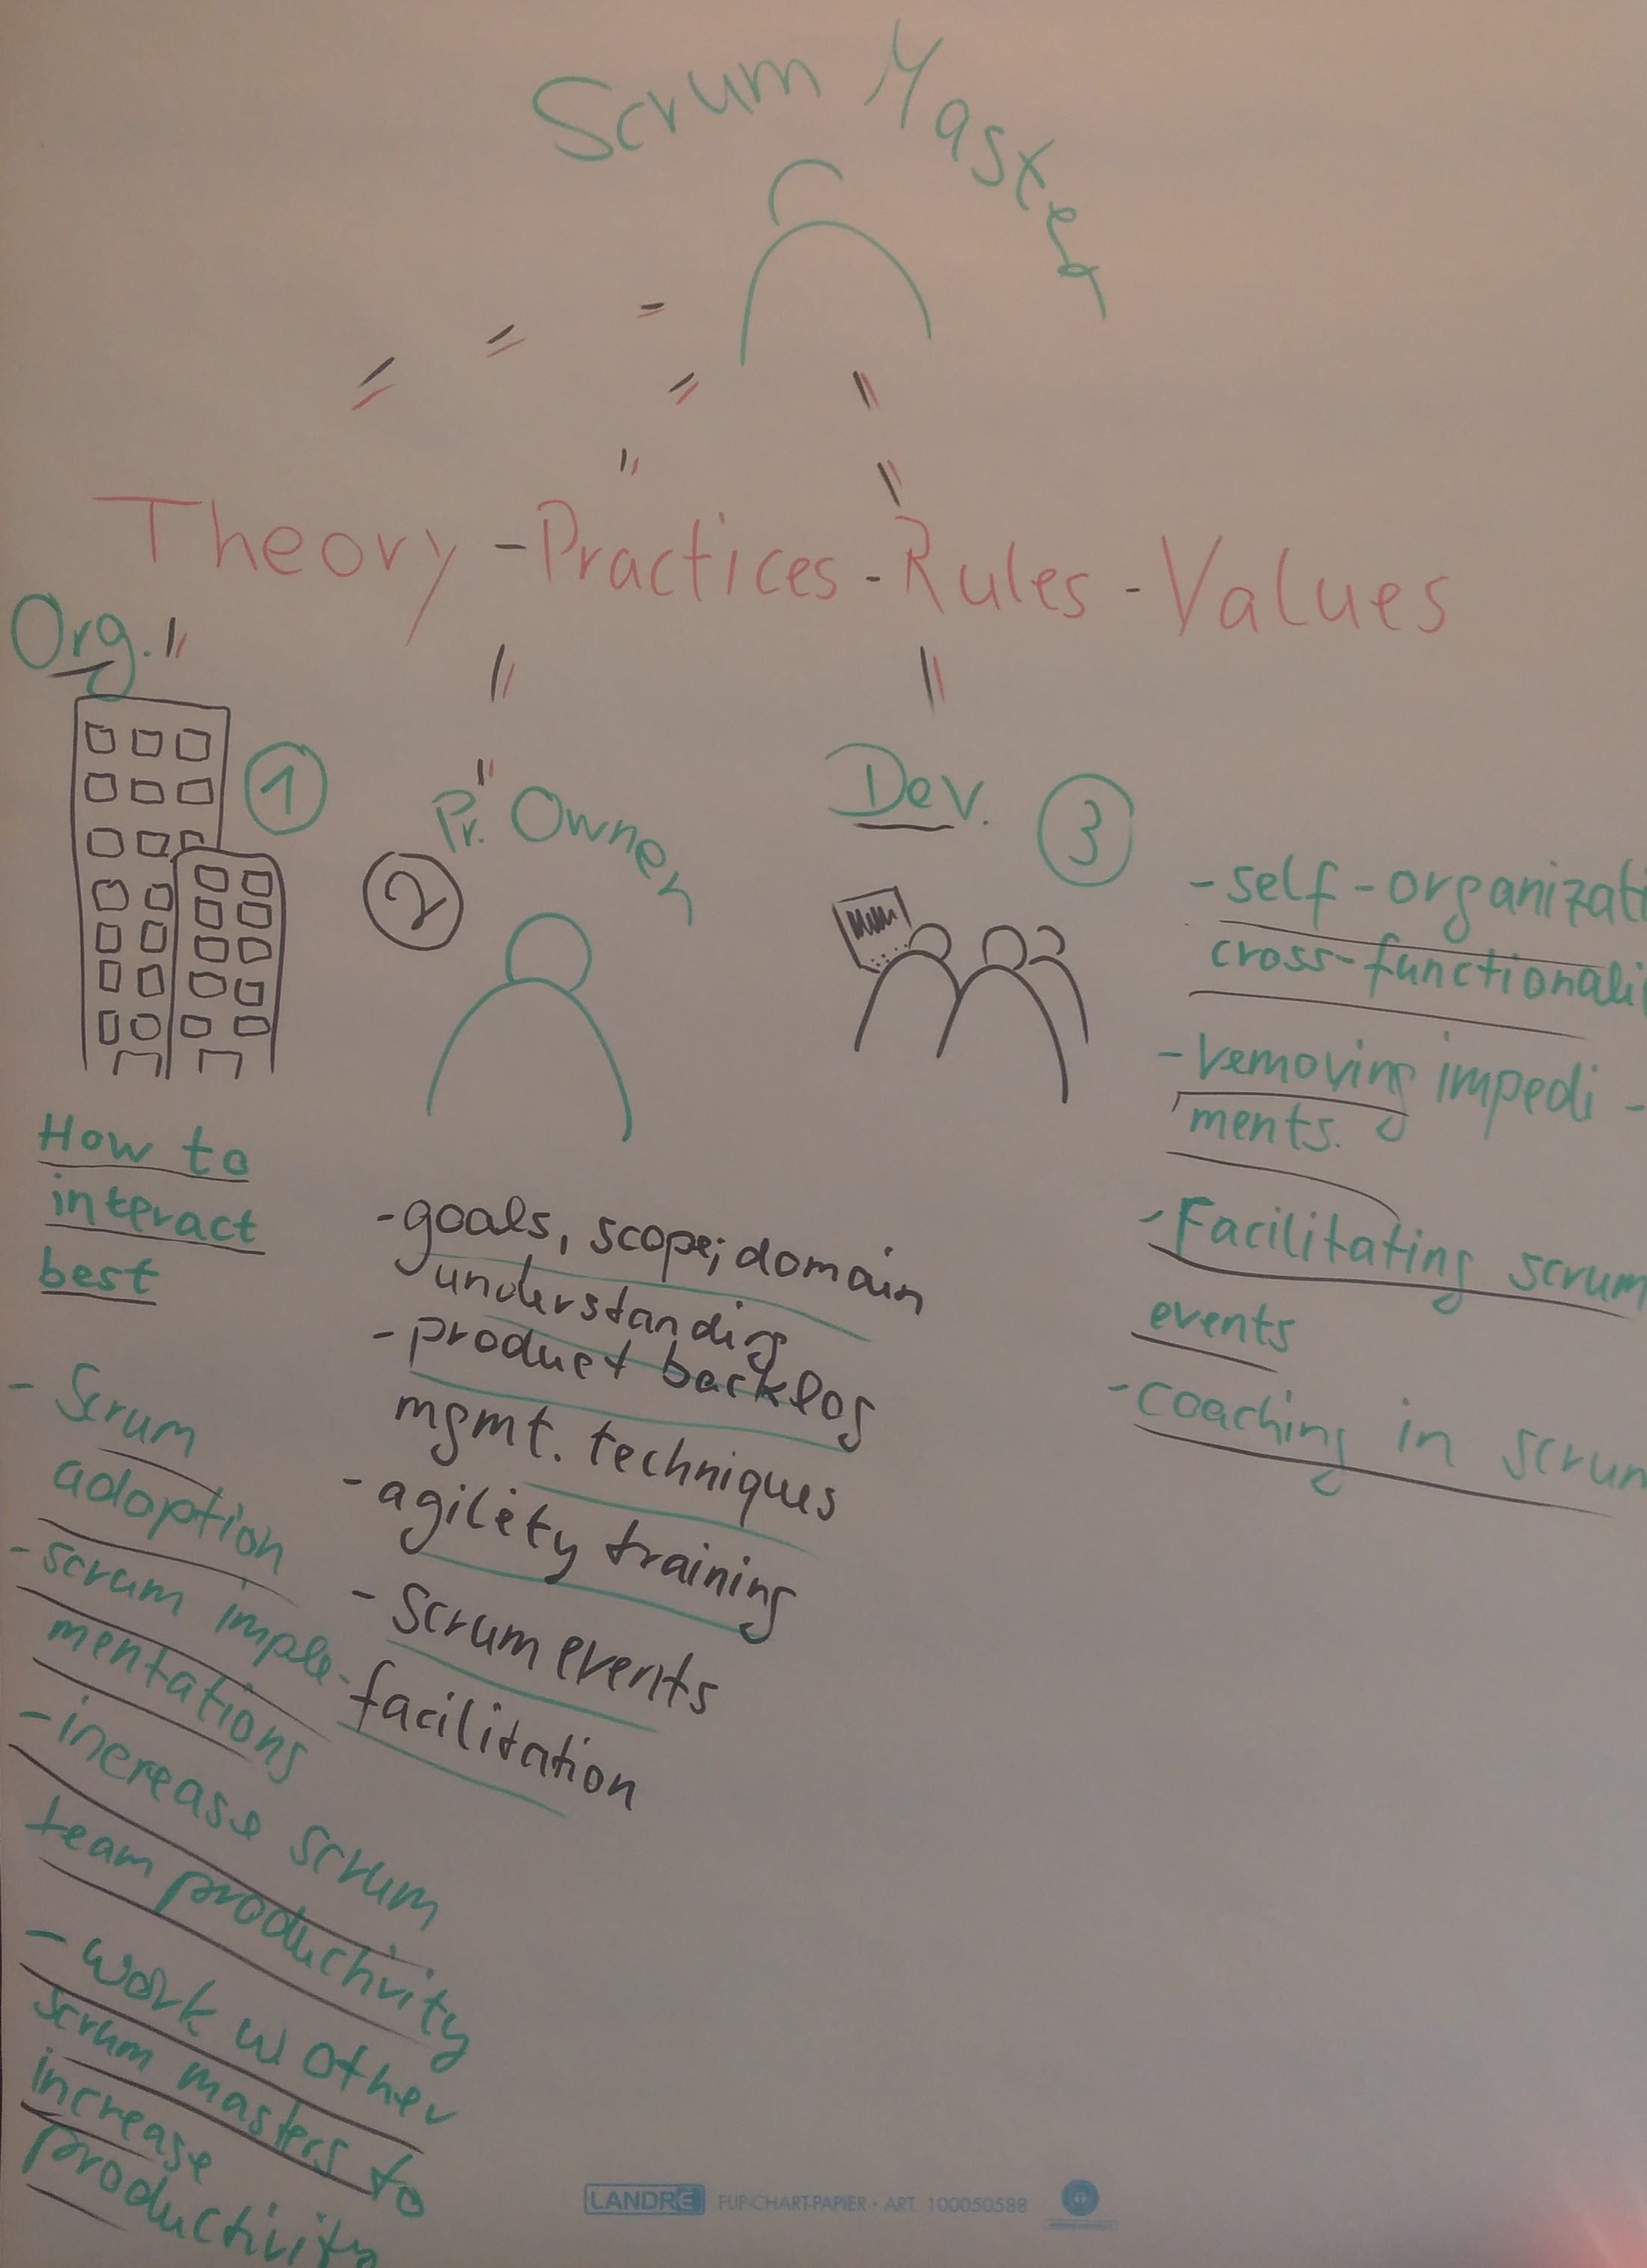 Scrum Master
Theory - Practices - Rules - Values
Org.
1
How to
interact
best
- Scrum
adoption
- scrum imple-
mentations
- increase scrum
team productivity
- work w other
scrum masters to
increase
productivity
2
Pr. Owner
- goals, scope; domain
understanding
- product backlog
mgmt. techniques
- agility training
- Scrum events
facilitation
Dev.
3
- self-organizati
cross-functionali
- removing impedi-
ments.
- Facilitating scrum
events
- coaching in scrum
LANDRÉ FLIP-CHART-PAPIER - ART. 100050588